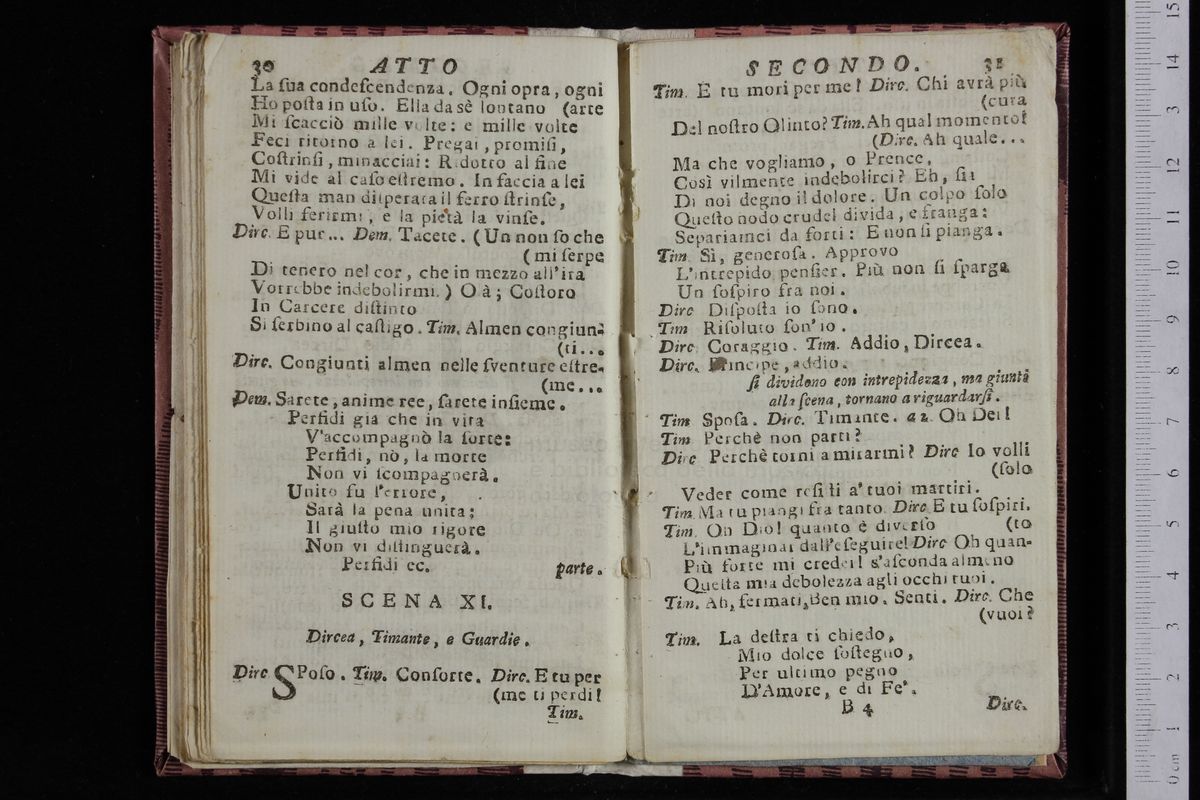 30 ATTO
La ſua condeſcendenza. Ogni opra, ogni
Ho poſta in uſo. Ella da sè lontano (arte
Mi ſcacciò mille volte: e mille volte
Feci ritorno a lei. Pregai, promiſi,
Coſtrinſi, minacciai: Ridotto al fine
Mi vide al caſo eſtremo. In faccia a lei
Queſta man diſperata il ferro ſtrinſe,
Volli ferirmi, e la pietà la vinſe.
Dirc. E pur... Dem. Tacete. (Un non ſo che
(mi ſerpe
Di tenero nel cor, che in mezzo all'ira
Vorrebbe indebolirmi.) Olà; Coſtoro
In Carcere diſtinto
Si ſerbino al caſtigo. Tim. Almen congiun-
(ti...
Dirc. Congiunti almen nelle ſventure eſtre-
(me...
Dem. Sarete, anime ree, ſarete inſieme.
Perfidi già che in vita
V'accompagnò la ſorte:
Perfidi, nò, la morte
Non vi ſcompagnerà.
Unito fu l'errore,
Sarà la pena unita;
Il giuſto mio rigore
Non vi diſtinguerà.
Perfidi ec. parte.
SCENA XI.
Dircea, Timante, e Guardie.
Dirc SPoſo. Tim. Conſorte. Dirc. E tu per
(me ti perdi!
Tim.
SECONDO. 31
Tim. E tu mori per me! Dirc. Chi avrà più
(cura
Del noſtro Olinto? Tim. Ah qual momento!
(Dirc. Ah quale...
Ma che vogliamo, o Prence,
Così vilmente indebolirci? Eh, ſii
Di noi degno il dolore. Un colpo ſolo
Queſto nodo crudel divida, e franga:
Separiamci da forti: E non ſi pianga.
Tim Sì, generoſa. Approvo
L'intrepido penſier. Più non ſi ſparga
Un ſoſpiro fra noi.
Dirc Diſpoſta io ſono.
Tim Riſoluto ſon'io.
Dirc Coraggio. Tim. Addio, Dircea.
Dirc. Principe, addio.
ſi dividono con intrepidezza, ma giunti
alla ſcena, tornano a riguardarſi.
Tim Spoſa. Dirc. Timante. a 2. Oh Dei!
Tim Perchè non parti?
Dirc Perchè torni a mirarmi? Dirc Io volli
(ſolo
Veder come reſiſti a' tuoi martiri.
Tim. Ma tu piangi fra tanto. Dirc E tu ſoſpiri.
Tim. Oh Dio! quanto è diverſo (to
L'immaginar dall'eſeguire! Dirc Oh quan-
Più forte mi credei! s'aſconda almeno
Queſta mia debolezza agli occhi tuoi.
Tim. Ah, fermati, Ben mio. Senti. Dirc. Che
(vuoi?
Tim. La deſtra ti chiedo,
Mio dolce ſoſtegno,
Per ultimo pegno
D'Amore, e di Fe'.
B 4 Dirc.
0 cm 1 2 3 4 5 6 7 8 9 10 11 12 13 14 15